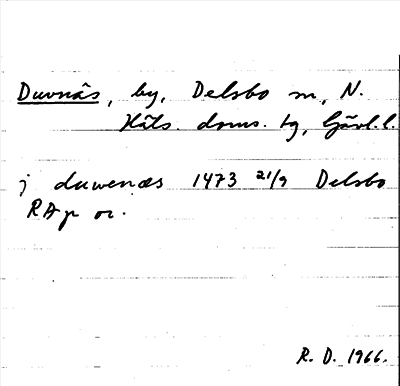 Duvnäs, by, Delsbo sn, N.
Häls. doms. tg, Gävl.l.
j duwenæs 1473 21/9 Delsbo
RAp or.
R. D. 1966.